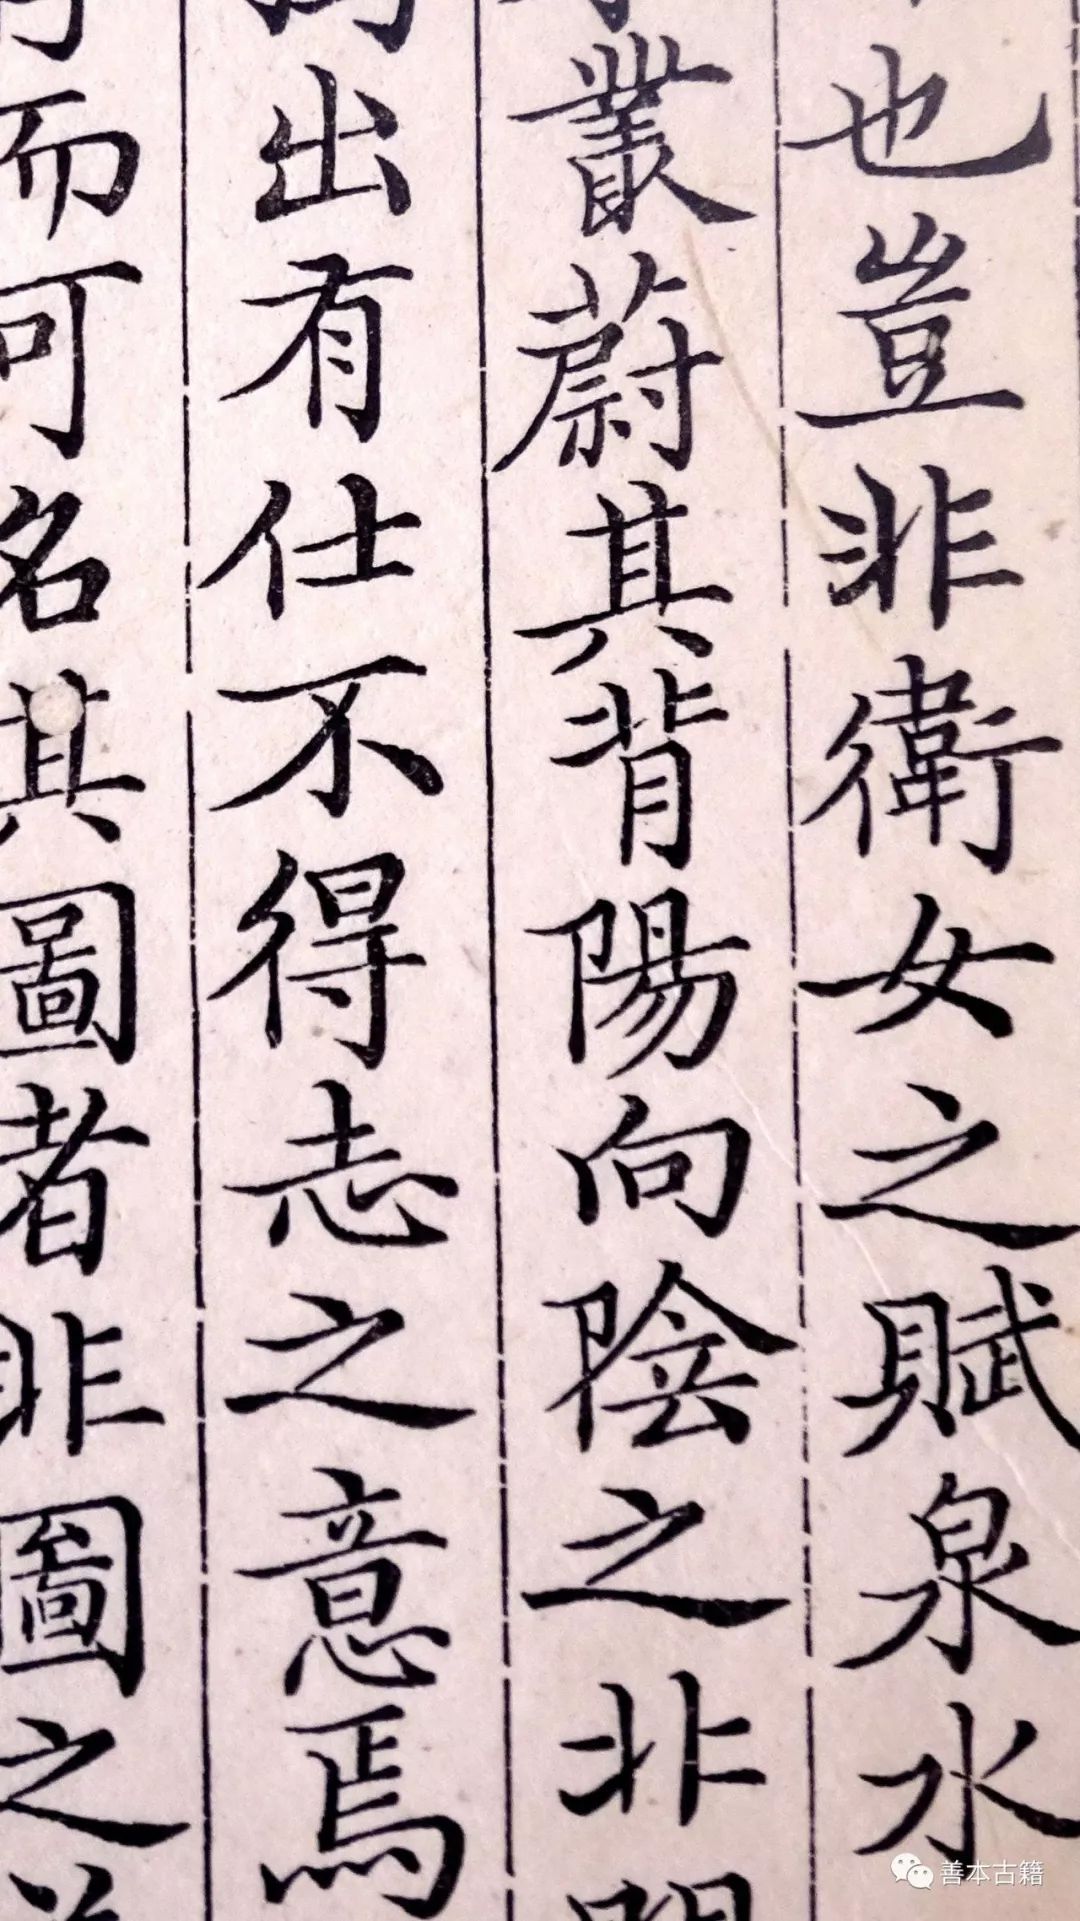 也豈非衛女之賦泉水
叢蔚其背陽向陰之非
出有仕不得志之意焉
而可名其圖者非圖之
善本古籍